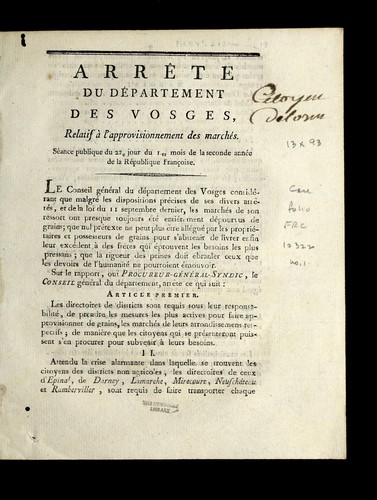 ARRÊTE
DU DÉPARTEMENT
DES VOSGES,
Relatif à l'approvisionnement des marchés.
Séance publique du 22e jour du 1er mois de la seconde année
de la République Françoise.
Citoyen
Delorm
13 x 93
Case
folio
FRC
10322
no.1
LE Conseil général du département des Vosges considé-
rant que malgré les dispositions précises de ses divers arrê-
tés, et de la loi du 11 septembre dernier, les marchés de son
ressort ont presque toujours été entièrement dépourvus de
grains; que nul prétexte ne peut plus être allégué par les proprié-
taires et possesseurs de grains pour s'abstenir de livrer enfin
leur excédent à des frères qui éprouvent les besoins les plus
pressans; que la rigueur des peines doit ébranler ceux que
les devoirs de l'humanité ne pourroient émouvoir.
Sur le rapport, oui PROCUREUR-GÉNÉRAL-SYNDIC, le
CONSEIL général du département, arrête ce qui suit :
ARTICLE PREMIER.
Les directoires de districts sont requis sous leur responsabi-
lité, de prendre les mesures les plus actives pour faire ap-
provisionner de grains, les marchés de leurs arrondissemens res-
pectifs; de manière que les citoyens qui se présenteront puis-
sent s'en procurer pour subvenir à leurs besoins.
II.
Attendu la crise alarmante dans laquelle se trouvent les
citoyens des districts non agricoles, les directoires de ceux
d'Epinal, de Darney, Lamarche, Mirecourt, Neufchâteau
et Ramberviller, sont requis de faire transporter chaque
THE NEWBERRY
LIBRARY